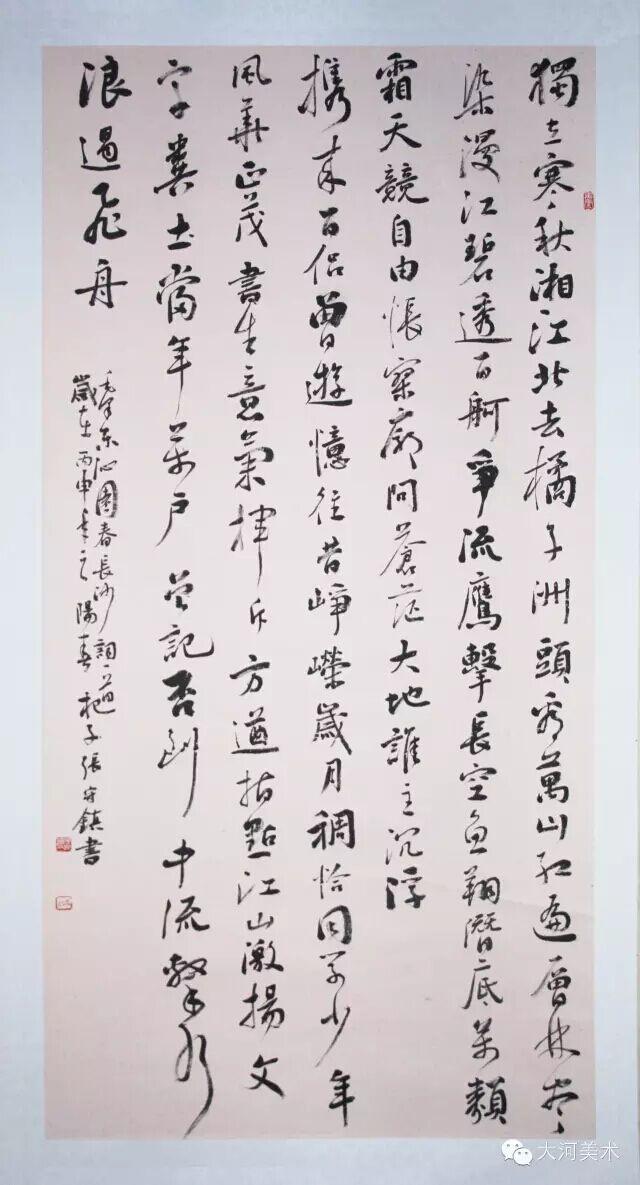 獨立寒秋湘江北去橘子洲頭看萬山紅遍層林盡
染漫江碧透百舸爭流鷹擊長空魚翔潛底萬類
霜天競自由悵寥廓問蒼茫大地誰主沉浮
攜來百侶曾遊憶往昔崢嶸歲月稠恰同學少年
風華正茂書生意氣揮斥方遒指點江山激揚文
字糞土當年萬戶曾記否到中流擊水
浪遏飛舟
毛澤東沁園春長沙詞一
歲在丙申年之陽春子張守鎮書
大河美术